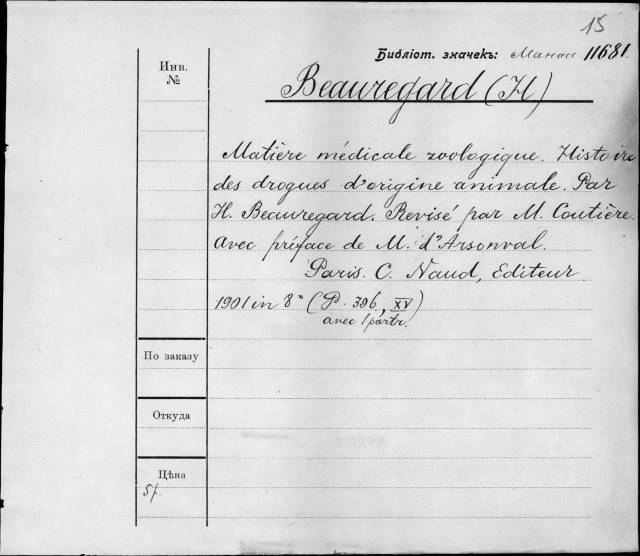 15
Библіот. значекъ: 11681.
Инв.
№
Beauregard (H)
Matière médicale zoologique. Histoire
des drogues d'origine animale. Par
H. Beauregard. Revisé par M. Coutière.
Avec préface de M. d'Arsonval.
Paris. C. Naud, Editeur
1901 in 8° (P. 396, XV)
avec 1 portr.
По заказу
Откуда
Цѣна
5f.